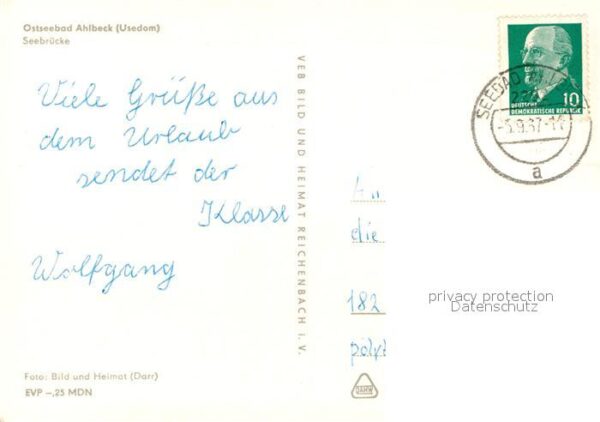 Ostseebad Ahlbeck (Usedom)
Seebrücke
Viele Grüße aus
dem Urlaub
sendet der
Klasse
Wolfgang
Foto: Bild und Heimat (Darr)
EVP –,25 MDN
VEB BILD UND HEIMAT REICHENBACH I. V.
10
DEUTSCHE
DEMOKRATISCHE REPUBLIK
SEEBAD
a
die
182
privacy protection
Datenschutz
DAMW